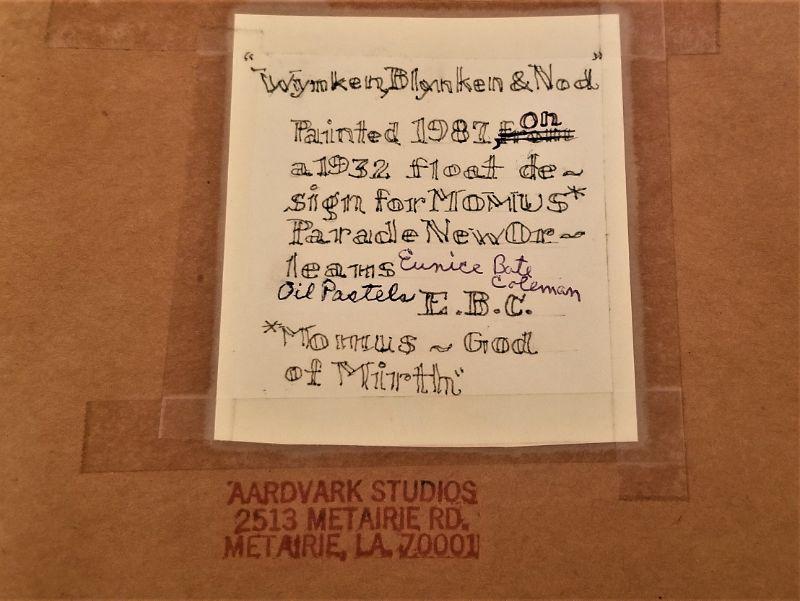 "Wynken, Blynken & Nod"
Painted 1987, from on
a 1932 float de~
sign for MOMUS*
Parade New Or~
leans Eunice Bate Coleman
Oil Pastels E.B.C.
*Momus ~ God
of Mirth"
AARDVARK STUDIOS
2513 METAIRIE RD.
METAIRIE, LA. 70001